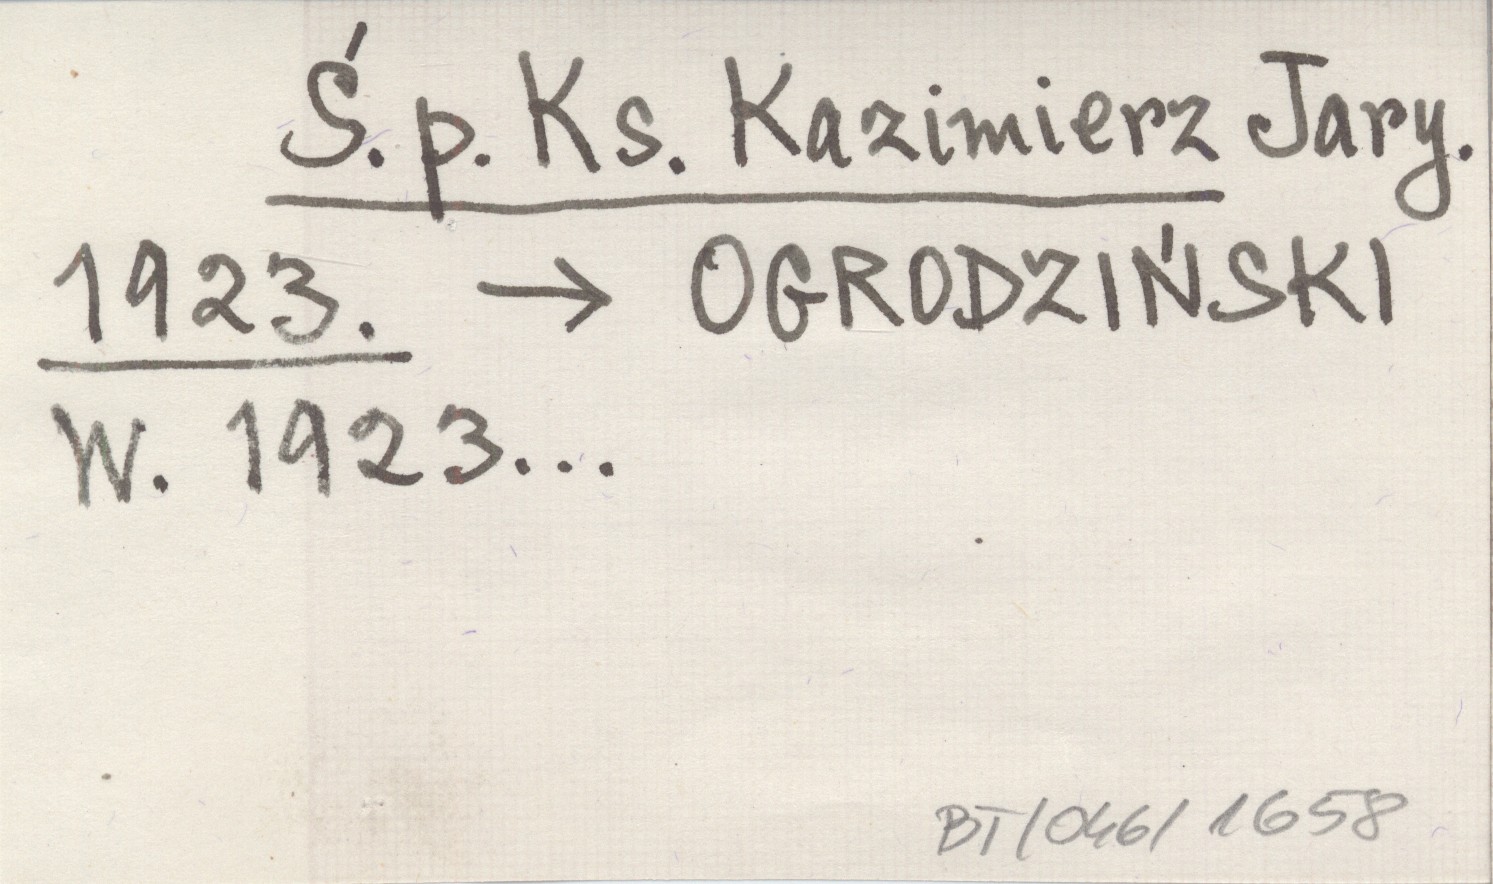 Ś.p. Ks. Kazimierz Jary.
1923. → OGRODZIŃSKI
W. 1923...
BT/046/1658